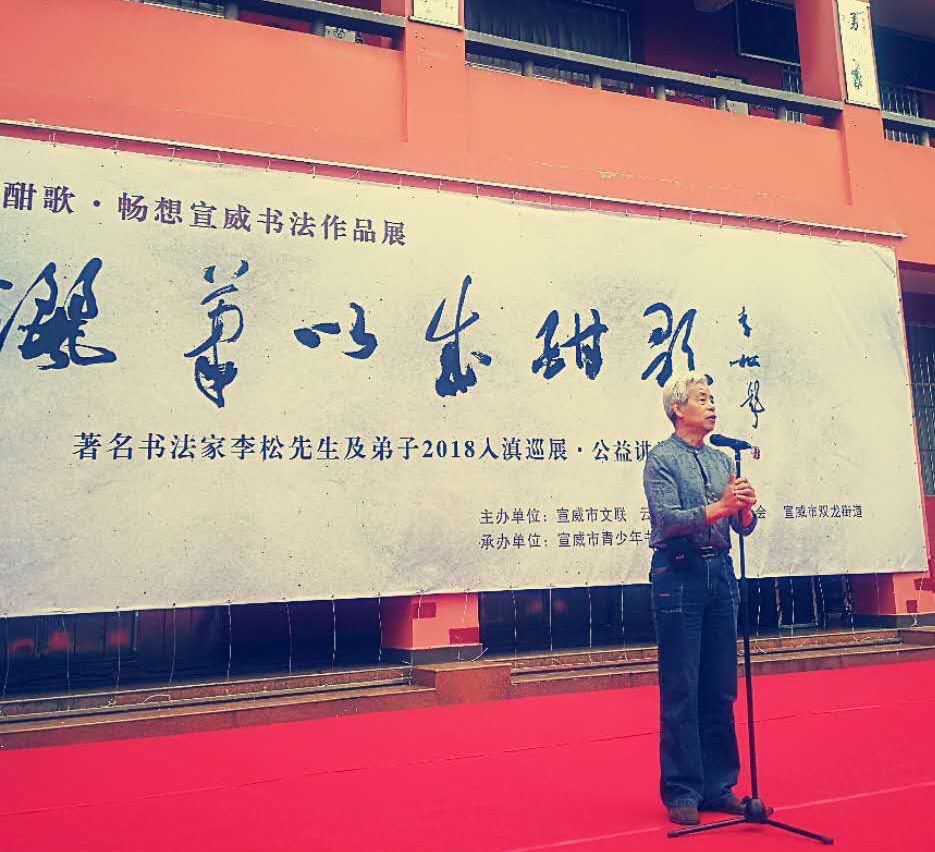 酣歌·畅想宣威书法作品展
以成酣歌
著名书法家李松先生及弟子2018入滇巡展·公益讲
主办单位：宣威市文联 云 会 宣威市双龙街道
承办单位：宣威市青少年